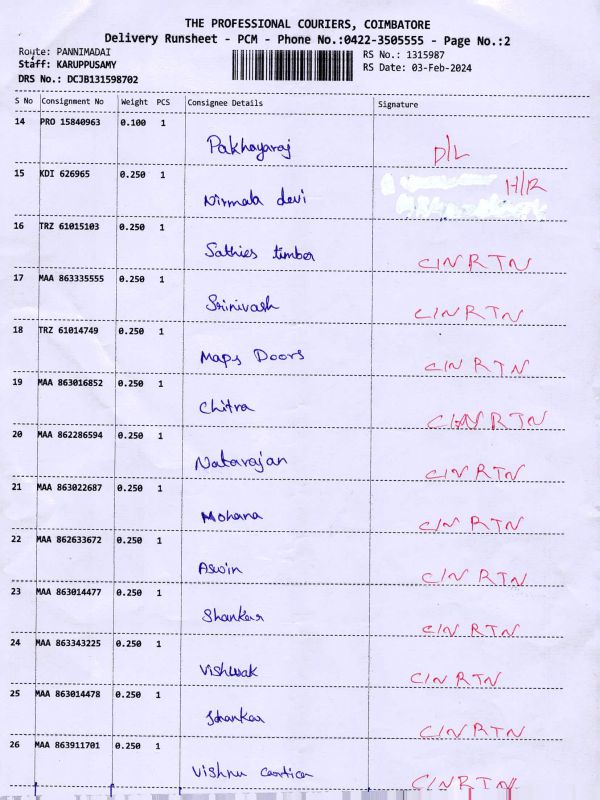 THE PROFESSIONAL COURIERS, COIMBATORE
Delivery Runsheet - PCM - Phone No.:0422-3505555 - Page No.:2
Route: PANNIMADAI
RS No.: 1315987
Staff: KARUPPUSAMY
RS Date: 03-Feb-2024
DRS No.: DCJB131598702
S No Consignment No Weight PCS Consignee Details Signature
14 PRO 15840963 0.100 1
Pakhayaraj D/L
15 KDI 626965 0.250 1
H/R
Nirmala devi
16 TRZ 61015103 0.250 1
Sathies timber C/N RTN
17 MAA 863335555 0.250 1
Srinivash C/N RTN
18 TRZ 61014749 0.250 1
Maps Doors C/N RTN
19 MAA 863016852 0.250 1
Chitra RTN
20 MAA 862286594 0.250 1
Natarajan C/N RTN
21 MAA 863022687 0.250 1
Mohana C/N RTN
22 MAA 862633672 0.250 1
Aswin C/N RTN
23 MAA 863014477 0.250 1
Shankar C/N RTN
24 MAA 863343225 0.250 1
Vishwak C/N RTN
25 MAA 863014478 0.250 1
Shankar C/N RTN
26 MAA 863911701 0.250 1
Vishnu C/N RTN